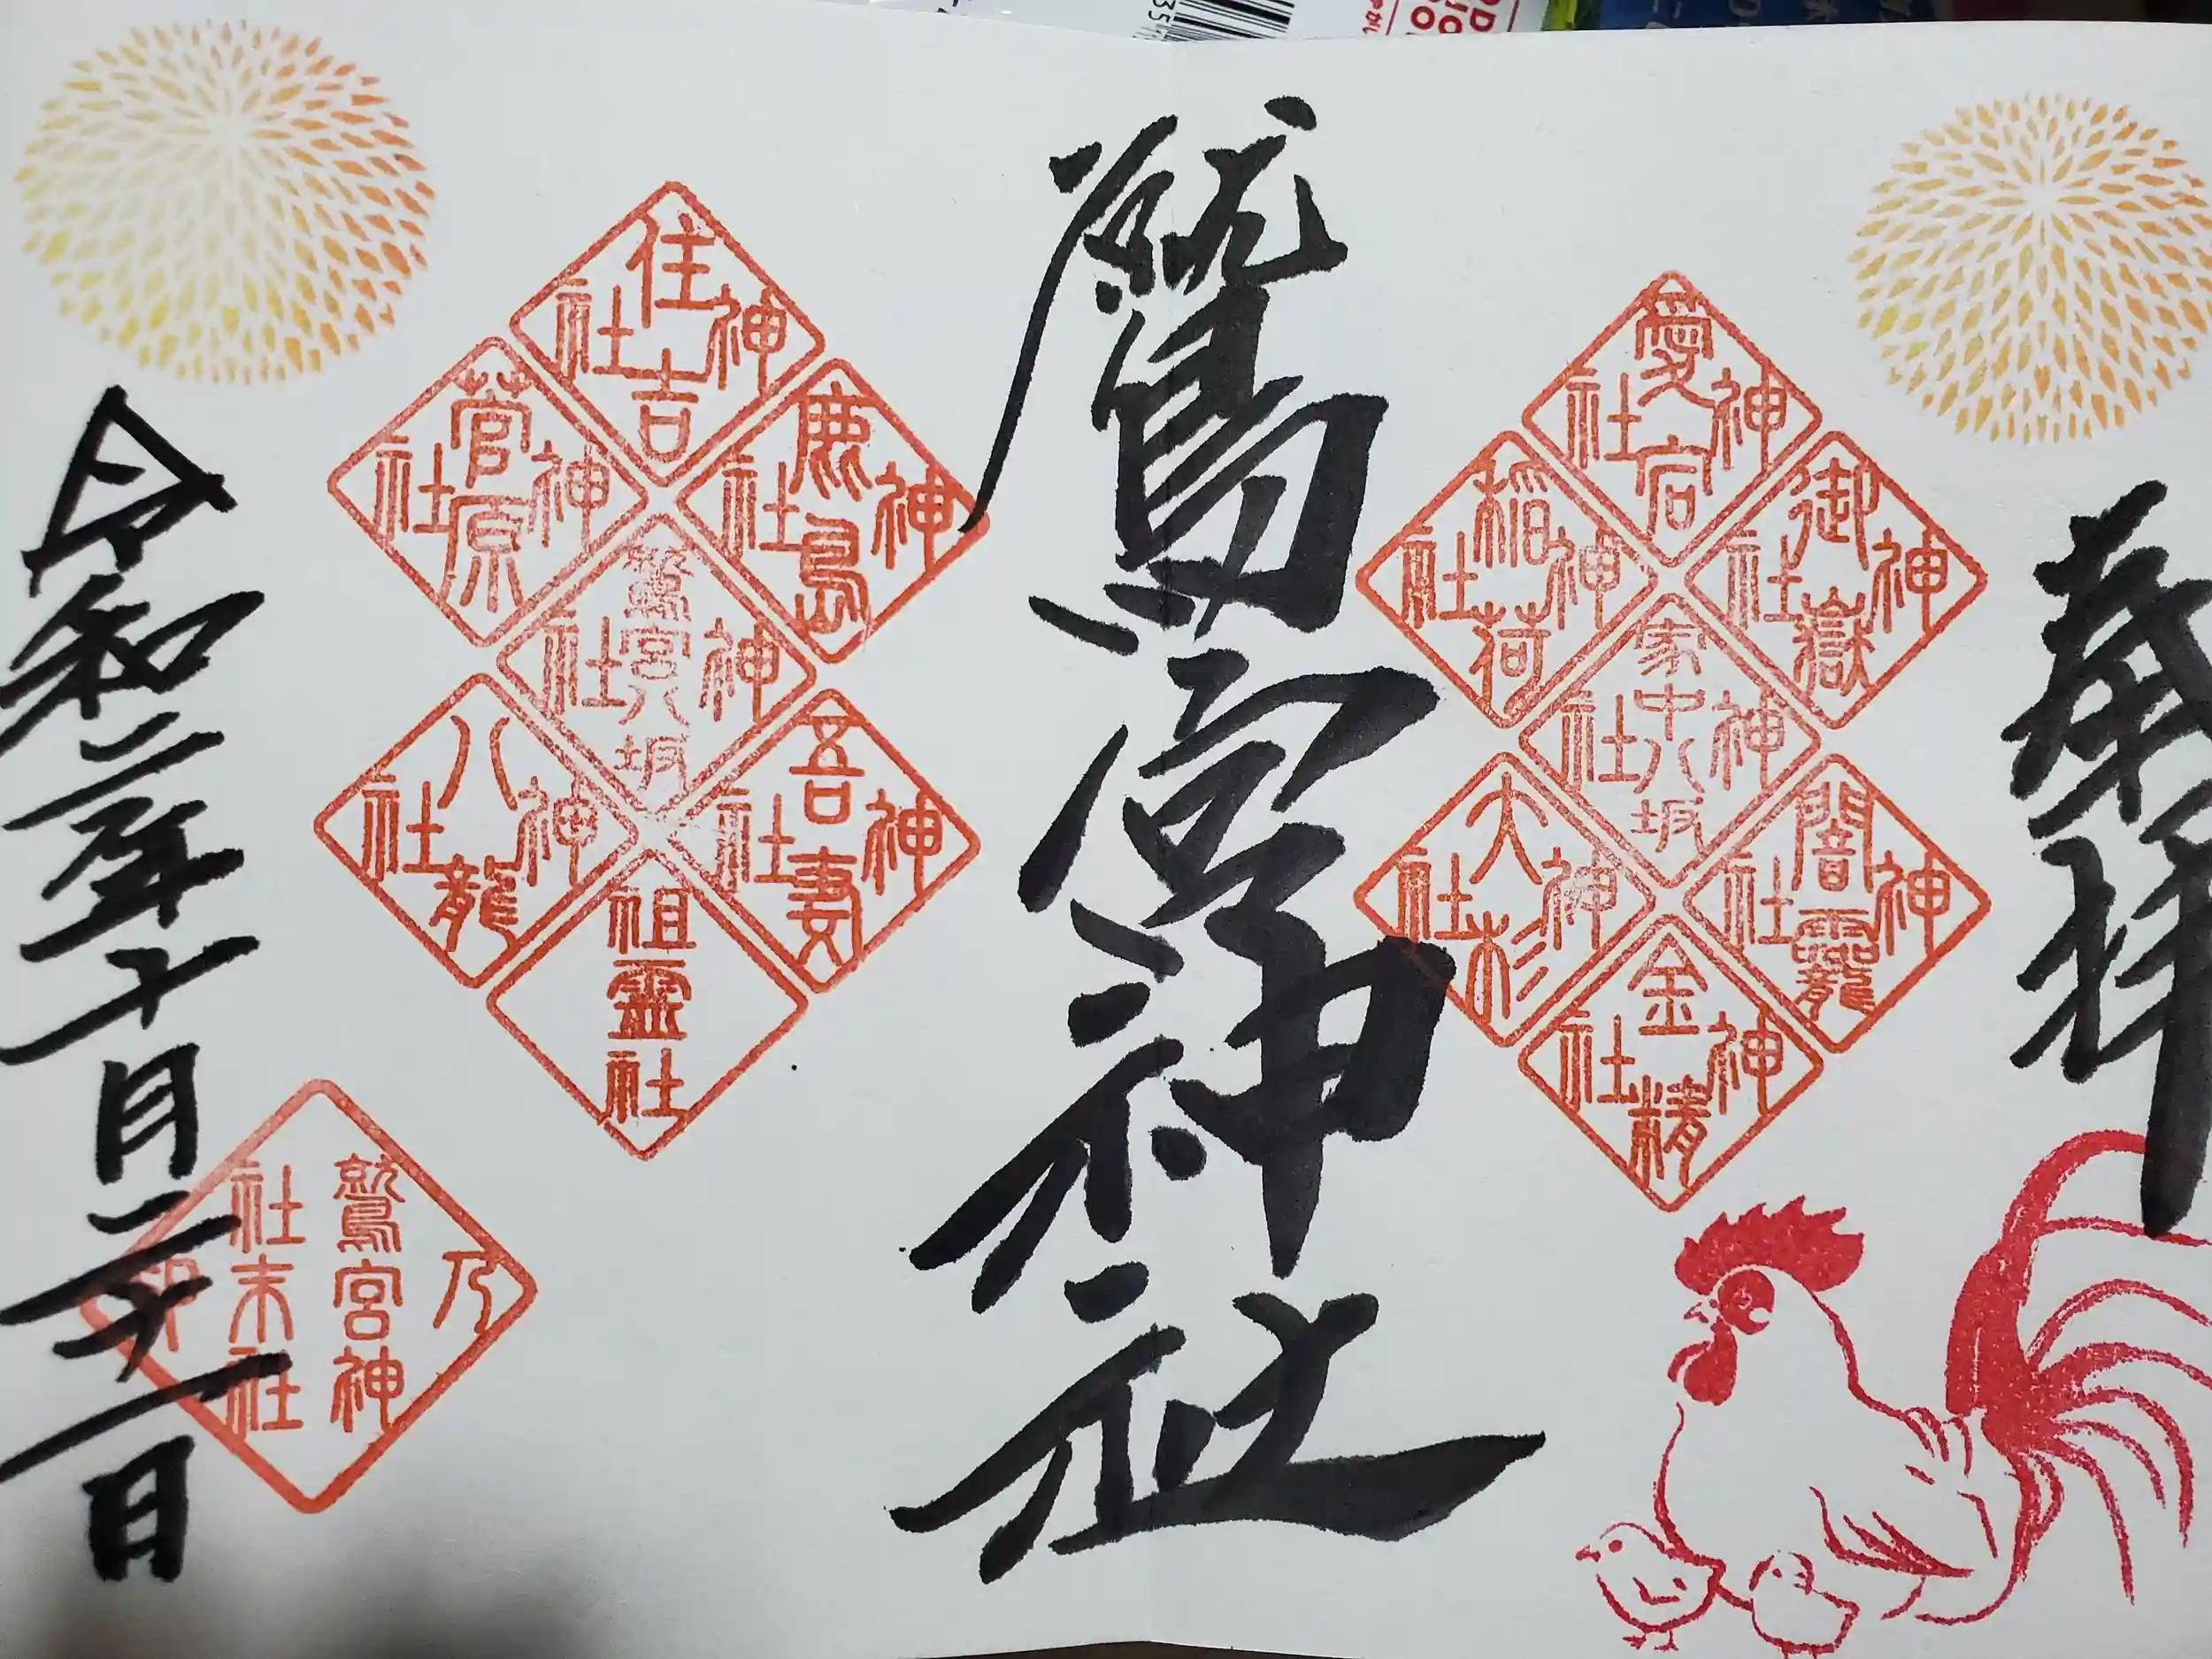 奉拝
愛宕神社
御嶽神社
稲荷神社
家中八坂神社
闇龗神社
大杉神社
金精神社
鷲宮神社
住吉神社
鹿島神社
菅原神社
鷲宮八坂神社
吾妻神社
八龍神社
祖霊社
鷲宮神社末社乃印
令和二年十一月二十一日